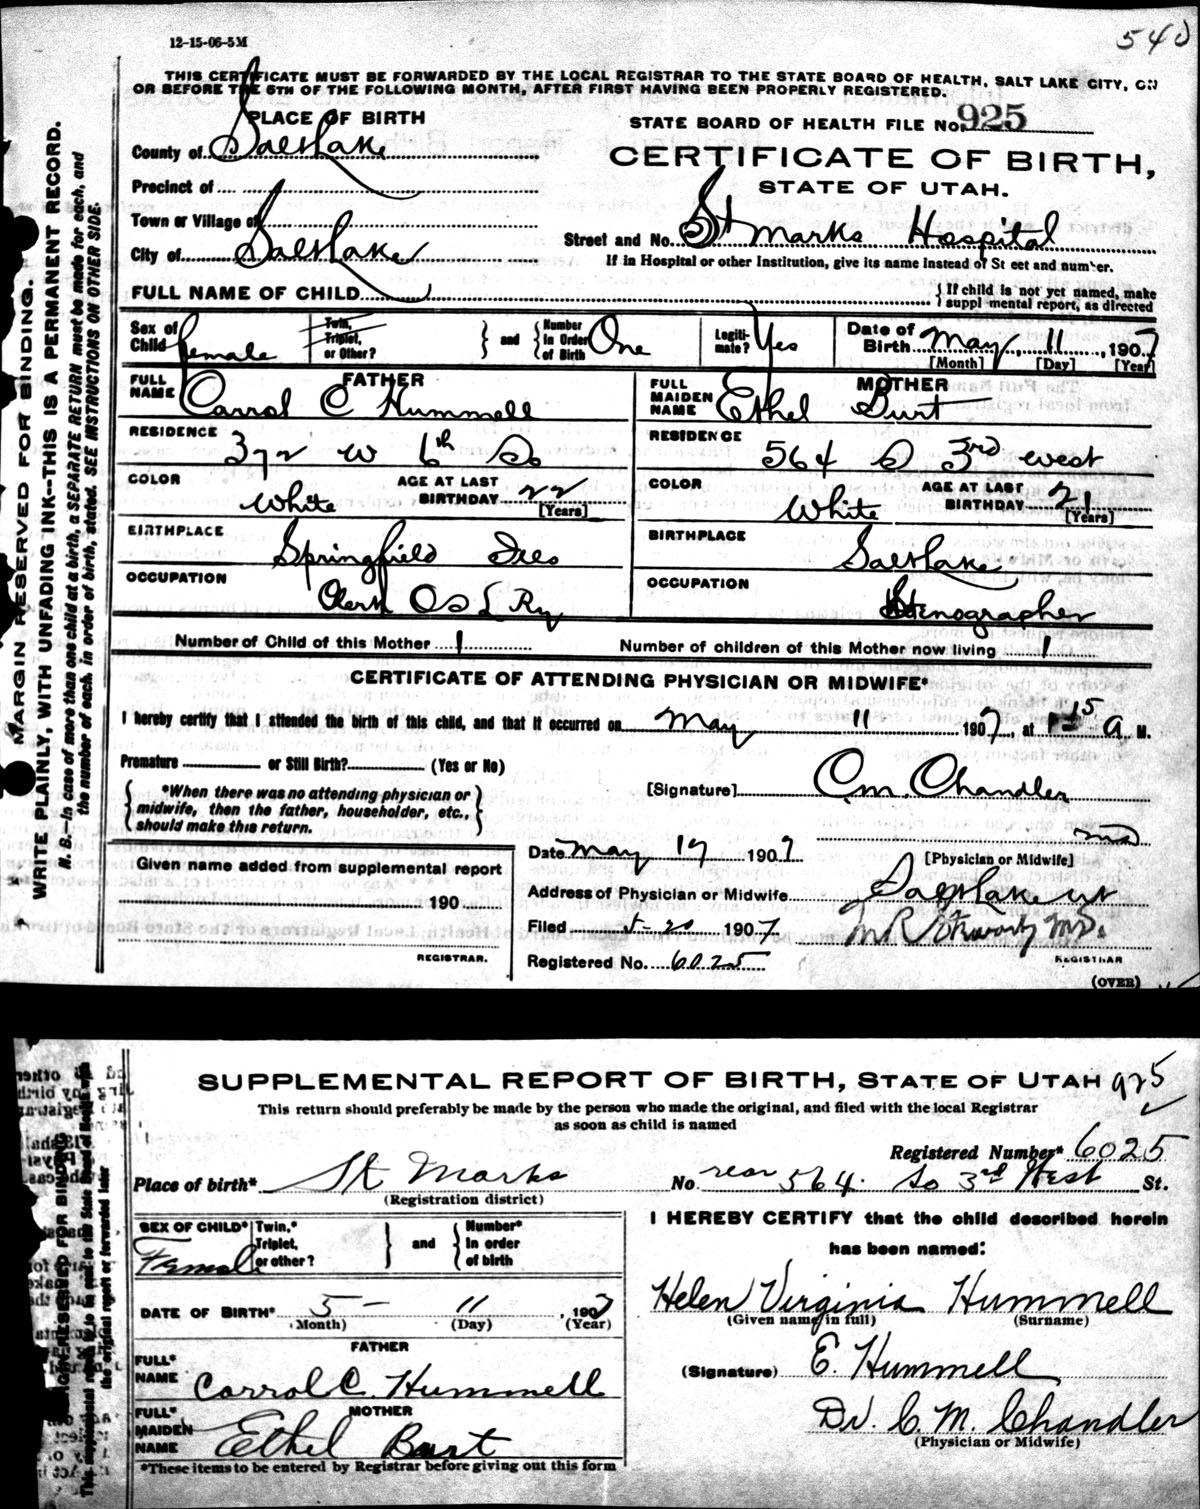 12-15-06-5M
540
THIS CERTIFICATE MUST BE FORWARDED BY THE LOCAL REGISTRAR TO THE STATE BOARD OF HEALTH, SALT LAKE CITY, ON
OR BEFORE THE 5TH OF THE FOLLOWING MONTH, AFTER FIRST HAVING BEEN PROPERLY REGISTERED.
MARGIN RESERVED FOR BINDING.
WRITE PLAINLY, WITH UNFADING INK--THIS IS A PERMANENT RECORD.
N. B.—In case of more than one child at a birth, a SEPARATE RETURN must be made for each, and
the number of each, in order of birth, stated. SEE INSTRUCTIONS ON OTHER SIDE.
PLACE OF BIRTH
STATE BOARD OF HEALTH FILE No. 925
County of Salt Lake
CERTIFICATE OF BIRTH,
STATE OF UTAH.
Precinct of
Town or Village of
Street and No. St Marks Hospital
City of Salt Lake
If in Hospital or other Institution, give its name instead of Street and number.
FULL NAME OF CHILD
If child is not yet named, make
supplemental report, as directed
Sex of Child female Twin, Triplet, or Other? and Number In Order of Birth One Legitimate? Yes Date of Birth May 11, 1907
[Month] [Day] [Year]
FATHER
FULL NAME Carrol C Hummell
MOTHER
FULL MAIDEN NAME Ethel Burt
RESIDENCE 372 W 6th So
RESIDENCE 564 S 3rd West
COLOR White AGE AT LAST BIRTHDAY 22 [Years]
COLOR White AGE AT LAST BIRTHDAY 21 [Years]
BIRTHPLACE Springfield Ills
BIRTHPLACE Salt Lake
OCCUPATION Clerk O S L Ry
OCCUPATION Stenographer
Number of Child of this Mother 1 Number of children of this Mother now living 1
CERTIFICATE OF ATTENDING PHYSICIAN OR MIDWIFE*
I hereby certify that I attended the birth of this child, and that it occurred on May 11 1907, at 1 15 A M.
Premature or Still Birth? (Yes or No)
*When there was no attending physician or
midwife, then the father, householder, etc.,
should make this return.
[Signature] C.M. Chandler
MD
[Physician or Midwife]
Given name added from supplemental report
190
REGISTRAR.
Date May 17 1907
Address of Physician or Midwife Salt Lake Ut
Filed 5-20 1907
Registered No. 6025
REGISTRAR
(OVER)
SUPPLEMENTAL REPORT OF BIRTH, STATE OF UTAH 925
This return should preferably be made by the person who made the original, and filed with the local Registrar
as soon as child is named
Registered Number* 6025
Place of birth* St Marks No. rear 564 So 3rd West St.
(Registration district)
SEX OF CHILD* Female Twin,* Triplet, or other? and Number* In order of birth
I HEREBY CERTIFY that the child described herein
has been named:
DATE OF BIRTH* 5 - 11, 1907
(Month) (Day) (Year)
Helen Virginia Hummell
(Given name in full) (Surname)
FATHER
FULL* NAME Carrol C. Hummell
(Signature) E. Hummell
MOTHER
FULL* MAIDEN NAME Ethel Burt
Dr. C. M. Chandler
(Physician or Midwife)
*These items to be entered by Registrar before giving out this form